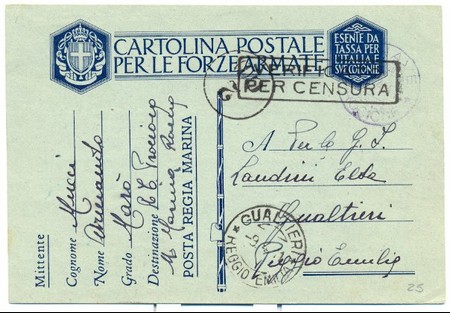 CARTOLINA POSTALE
PER LE FORZE ARMATE
ESENTE DA
TASSA PER
L'ITALIA E
SVE COLONIE
VERIFIC
PER CENSURA
Mittente
Cognome Mucci
Nome Armando
Grado Marò
Destinazione
POSTA REGIA MARINA
Landini Elda
Gualtieri
Reggio Emilia
GUALTIERI
REGGIO EMILIA
25